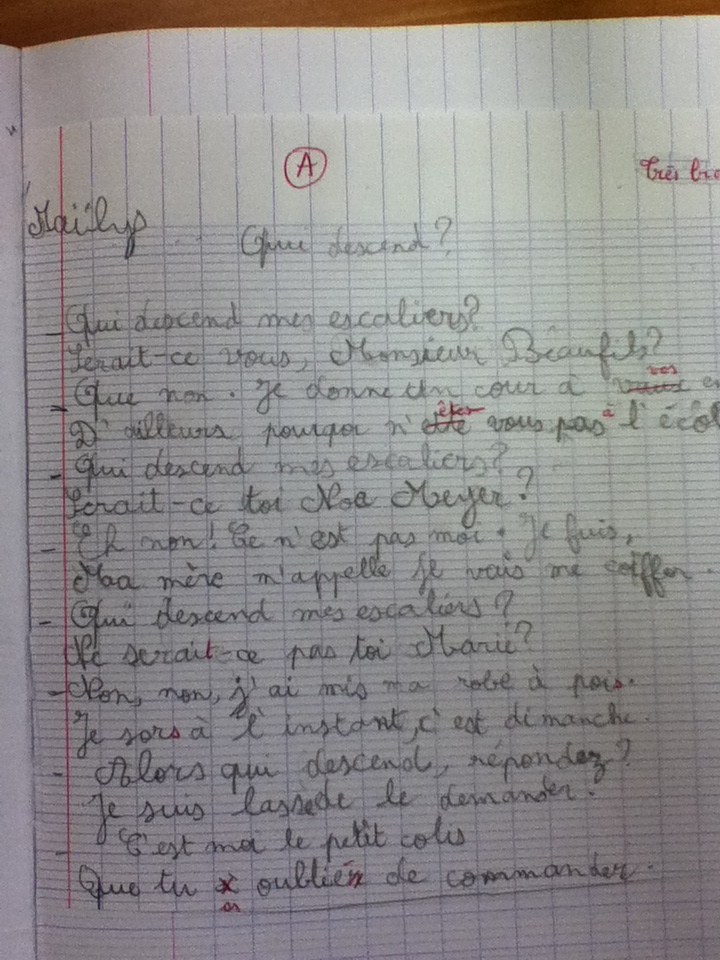 A
Très bie
Maïlys
Qui descend?
- Qui descend mes escaliers?
Serait-ce vous, Monsieur Beaufils?
- Que non. Je donne un cour à vos
D'ailleurs pourqoi n'êtes vous pas à l'écol
- Qui descend mes escaliers?
Serait-ce toi Noa Meyer?
- Eh non! Ce n'est pas moi. Je fuis,
Maa mère m'appelle je vais me coiffer.
- Qui descend mes escaliers?
Ne serait-ce pas toi Marie?
- Non, non, j'ai mis ma robe à pois.
Je sors à l'instant, c'est dimanche.
- Alors qui descend, répondez?
Je suis lassede le demander.
- C'est moi le petit colis
Que tu as oublié de commander.